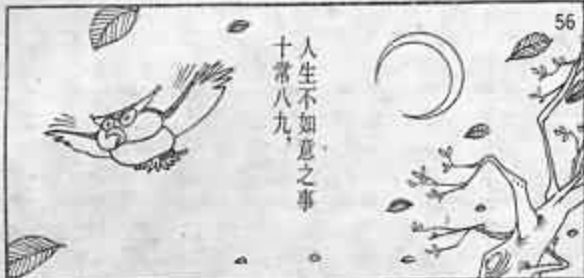 56
人生不如意之事
十常八九，